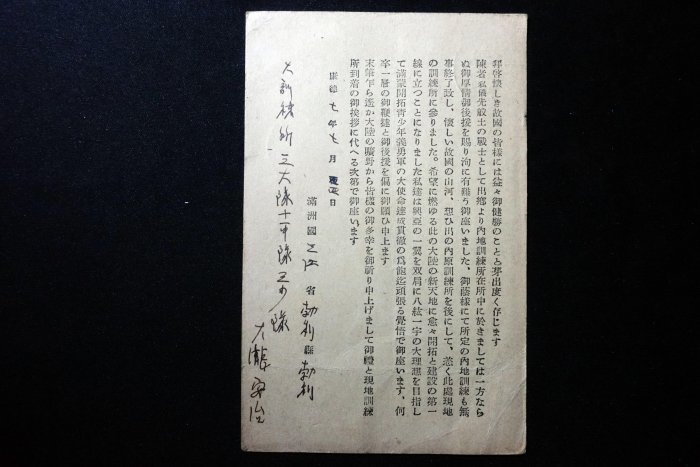 拜啓懷しき故國の皆樣には益々御健勝のことと芽出度く存じます
陳者私儀先般土の戰士として出鄕より內地訓練所在所中に於きましては一方なら
ぬ御厚情御後援を賜り洵に有難う御座いました、御蔭樣にて所定の內地訓練も無
事終了致し、懷しい故國の山河、想ひ出の內原訓練所を後にして、恙く此處現地
の訓練所に參りました。希望に燃ゆる此の大陸の新天地に愈々開拓と建設の第一
線に立つことになりました私達は興亞の一翼を双肩に八紘一宇の大理想を目指し
て滿蒙開拓靑少年義勇軍の大使命達成貫徹の爲飽迄頑張る覺悟で御座います、何
卒一層の御鞭達と御後援を偏に御願ひ申上ます
末筆乍ら遙か大陸の曠野から皆樣の御多幸を御祈り申上げまして御禮と現地訓練
所到着の御挨拶に代へる次第で御座います
康德 七年 七月 日
滿洲國 三江 省 勃利 縣 勃利
大訓練所 三大隊十一中隊三小隊
大瀧 安治